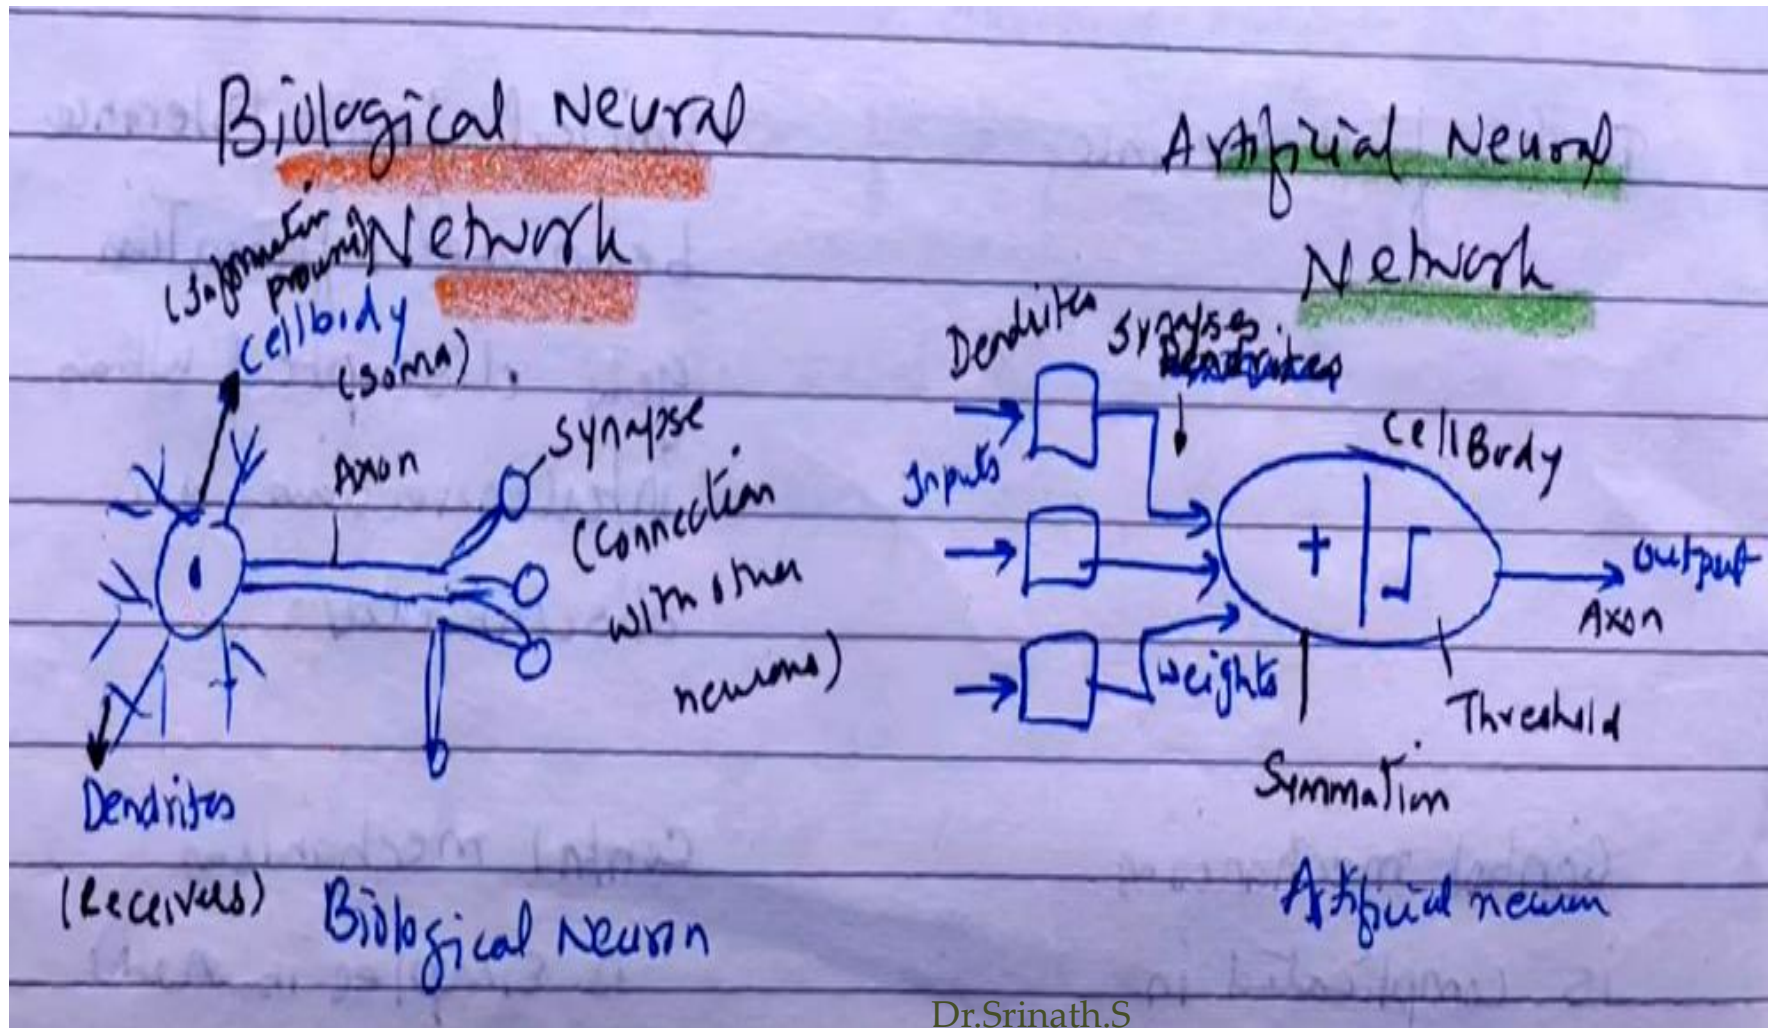 Biological Neural
Network
(Information
Cellbody
(Soma)
Axon
Synapse
(Connection
with other
neurons)
Dendrites
(Receivers)
Biological Neuron
Artificial Neural
Network
Dendrites
Synapses
Dendrites
Inputs
Cell Body
+
Output
Axon
Weights
Threshold
Summation
Artificial neuron
Dr.Srinath.S